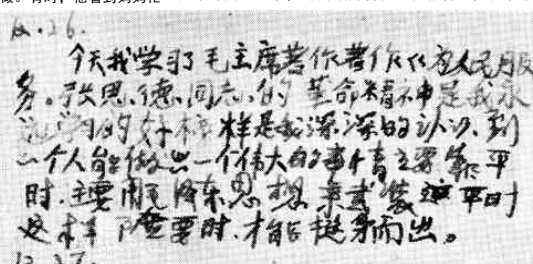 12.26.
今天我学习了毛主席著作著作《为人民服
务。张思德同志的革命精神是我永
远学习的好榜样是我深深的认识到
一个人能做出一个伟大的事情主要靠平
时.主要用毛泽东思想来武装平时
这样需要时.才能挺身而出。
12.27.